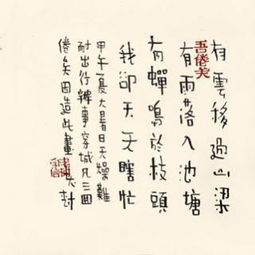 有雲移過山梁
有雨落入池塘
吾倦矣
有蟬鳴於枝頭
我卻天天瞎忙
甲午夏大暑日天燥難
耐出行辦事穿城凡三圈
倦矣因造此畫